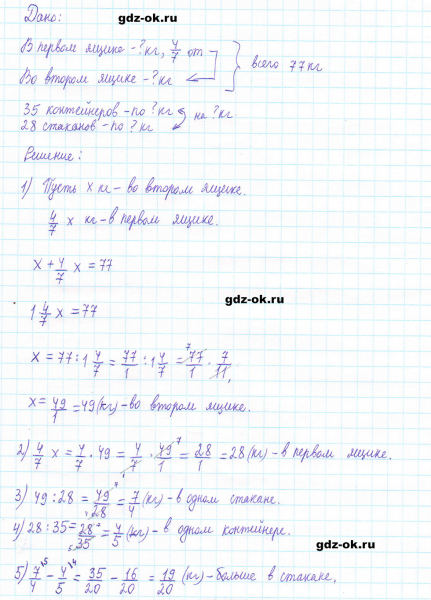 gdz-ok.ru
Дано:
В первом ящике - ? кг, 4/7 от
Во втором ящике - ? кг
всего 77 кг
35 контейнеров - по ? кг
28 стаканов - по ? кг
на ? кг
Решение:
1) Пусть x кг - во втором ящике.
4/7 x кг - в первом ящике.
x + 4/7 x = 77
gdz-ok.ru
1 4/7 x = 77
x = 77 : 1 4/7 = 77/1 : 1 4/7 = 77/1 · 7/11
x = 49/1 = 49 (кг) - во втором ящике.
2) 4/7 x = 4/7 · 49 = 4/7 · 49/1 = 28/1 = 28 (кг) - в первом ящике.
3) 49 : 28 = 49/28 = 7/4 (кг) - в одном стакане.
4) 28 : 35 = 28/35 = 4/5 (кг) - в одном контейнере.
gdz-ok.ru
5) 7/4 - 4/5 = 35/20 - 16/20 = 19/20 (кг) - больше в стакане.